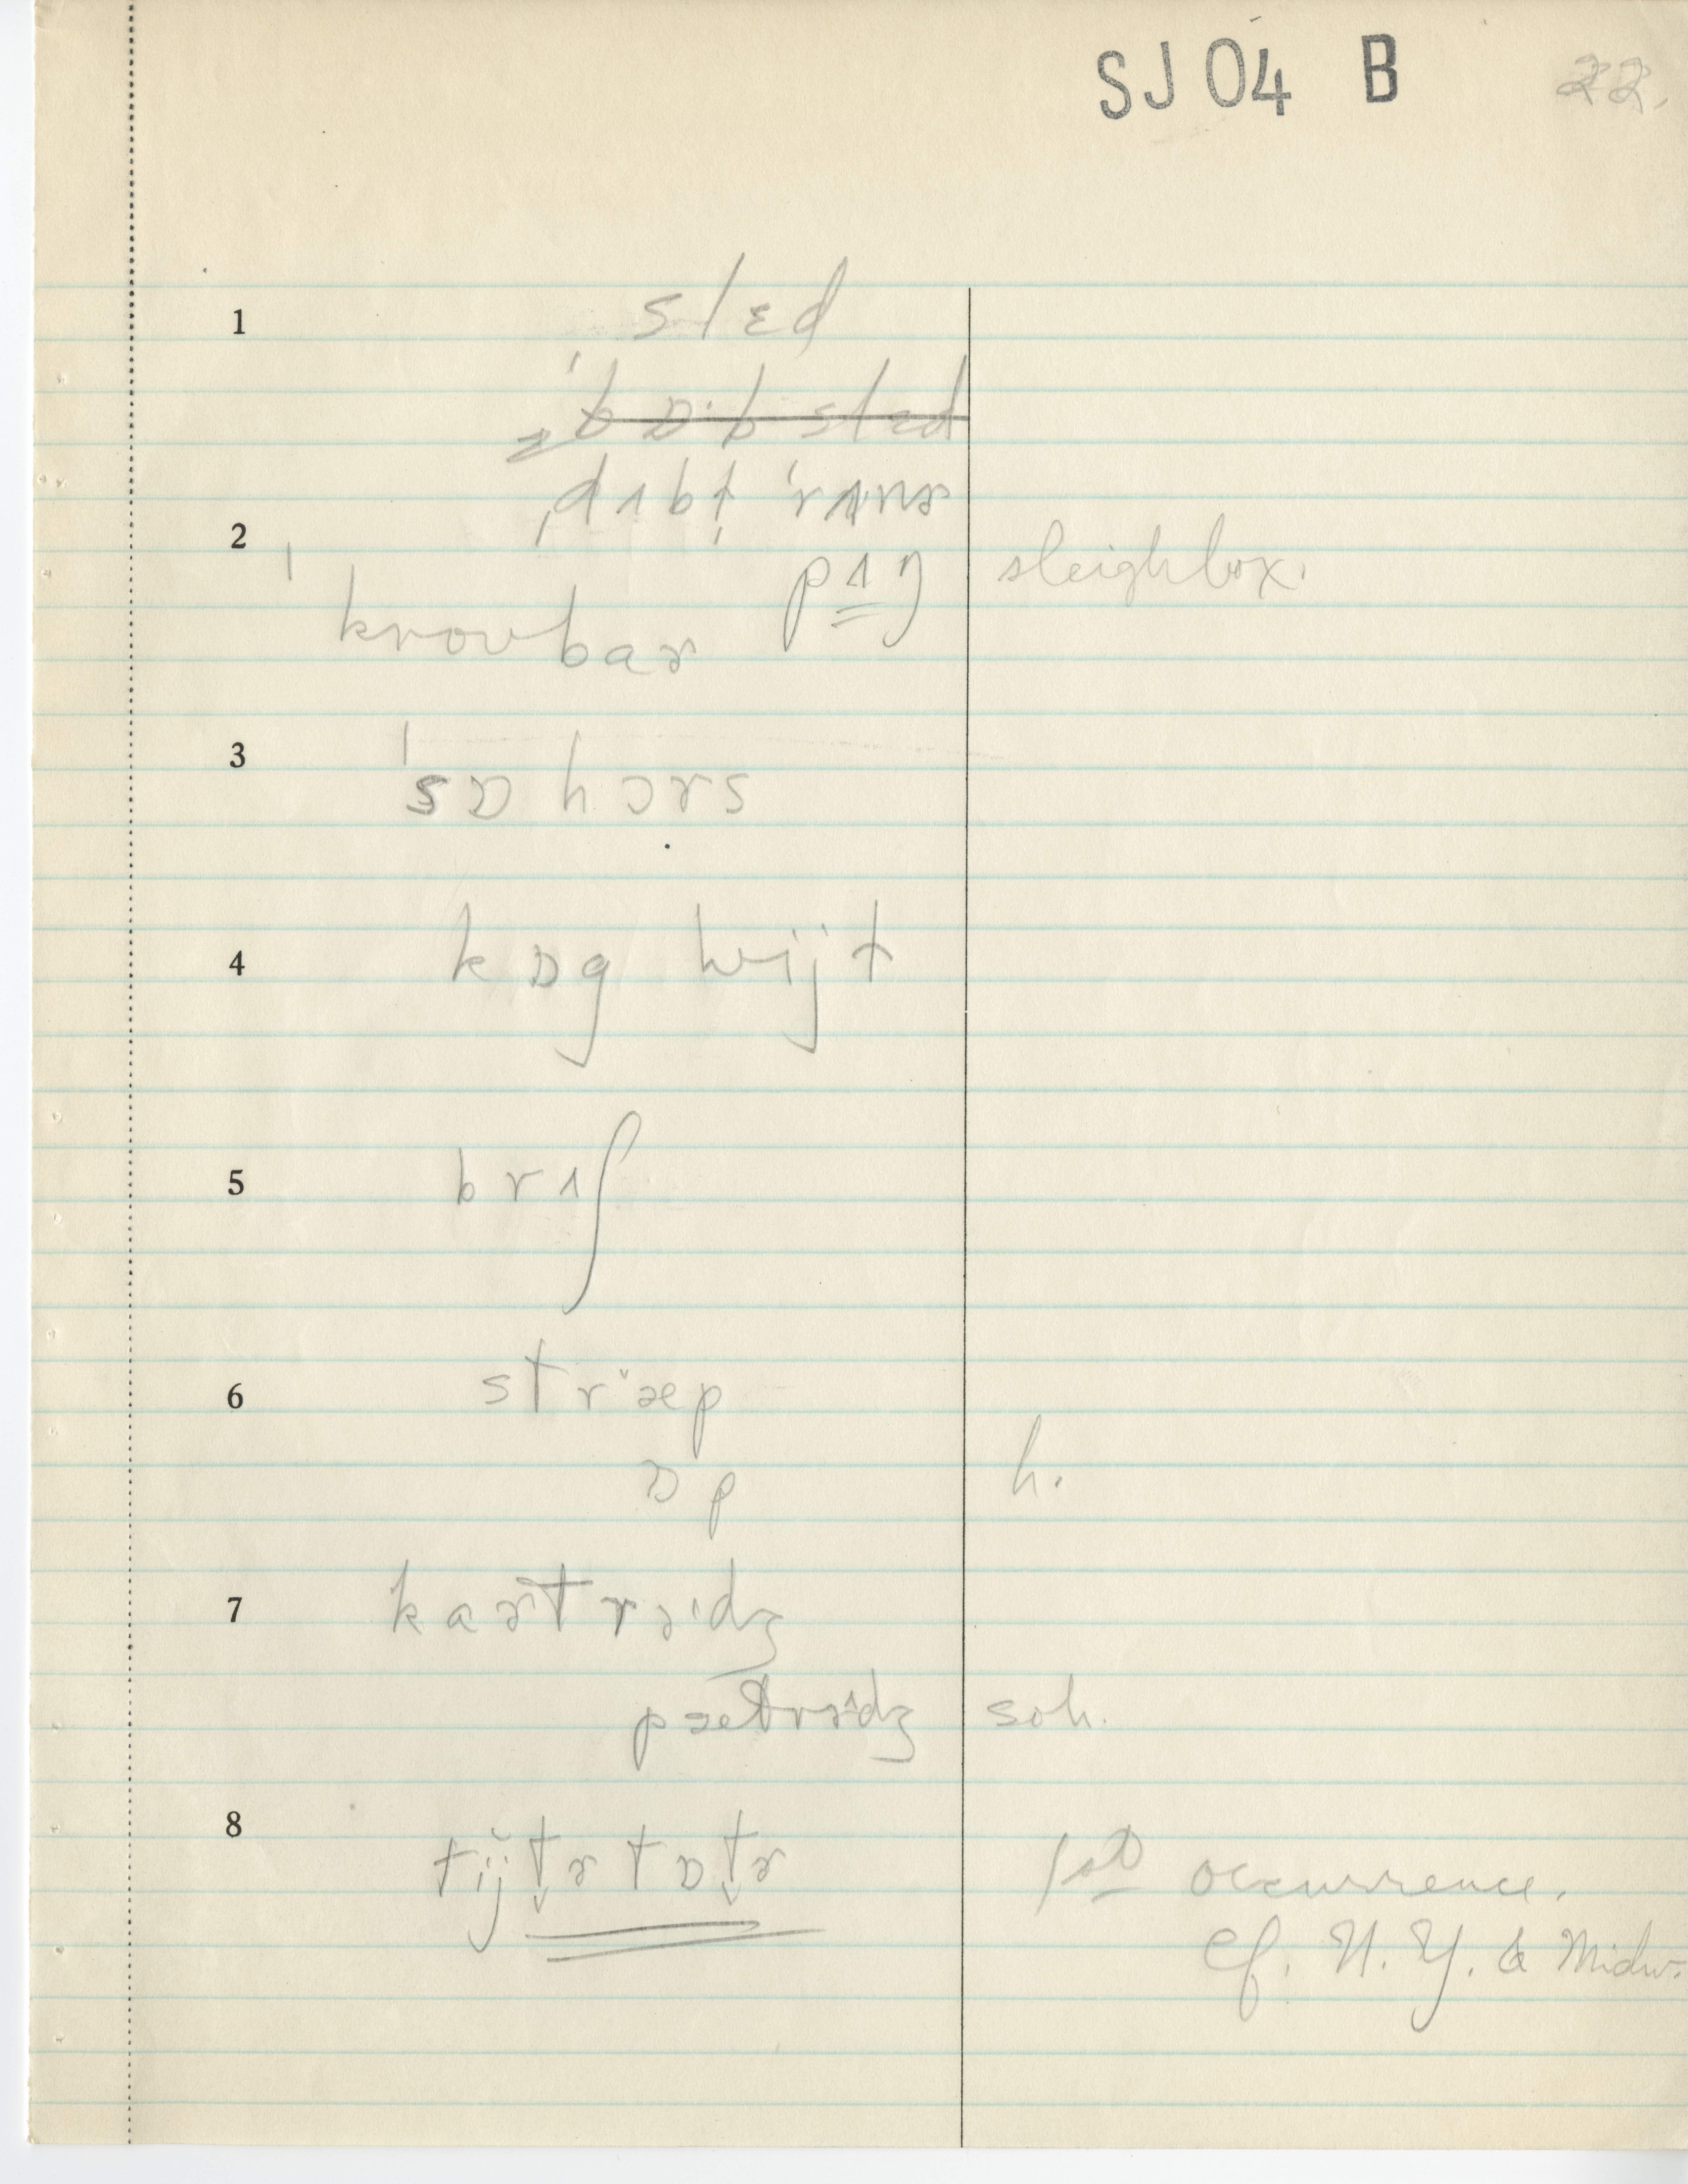 SJ 04 B 22.
1 slɛd
ˈbɒ·bslɛd
ˌdʌbl̩ ˈrʌnɚ
2 pʌŋ sleighbox.
ˈkroubaɚ
3 ˈsɒhɔrs
4 kɒg hwijl
5 brʌʃ
6 strˇæp
ɒp h.
7 kaɚtrɪdʒ
pætrɪdʒ soh.
8 tijt̬ɚ tɒt̬ɚ 1st occurrence.
cf. N. Y. & Midw.